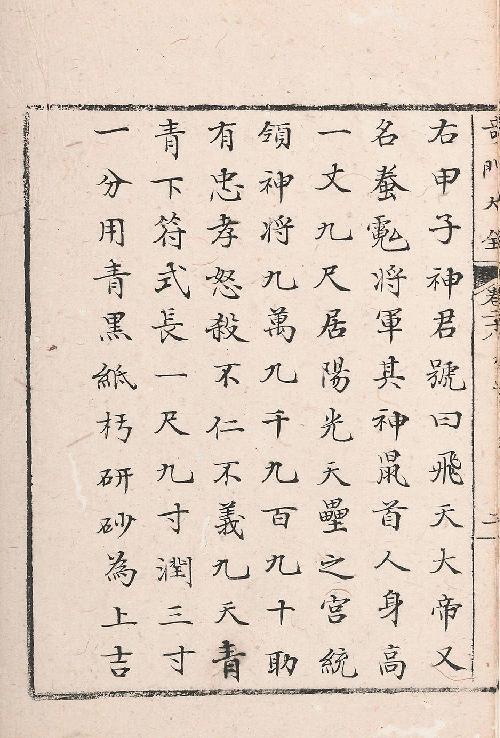 右甲子神君號曰飛天大帝又
名蝥䨲將軍其神鼠首人身高
一丈九尺居陽光天壘之宮統
領神将九萬九千九百九十助
有忠孝怒殺不仁不義九天青
青下符式長一尺九寸潤三寸
一分用青黑紙杇研砂為上吉